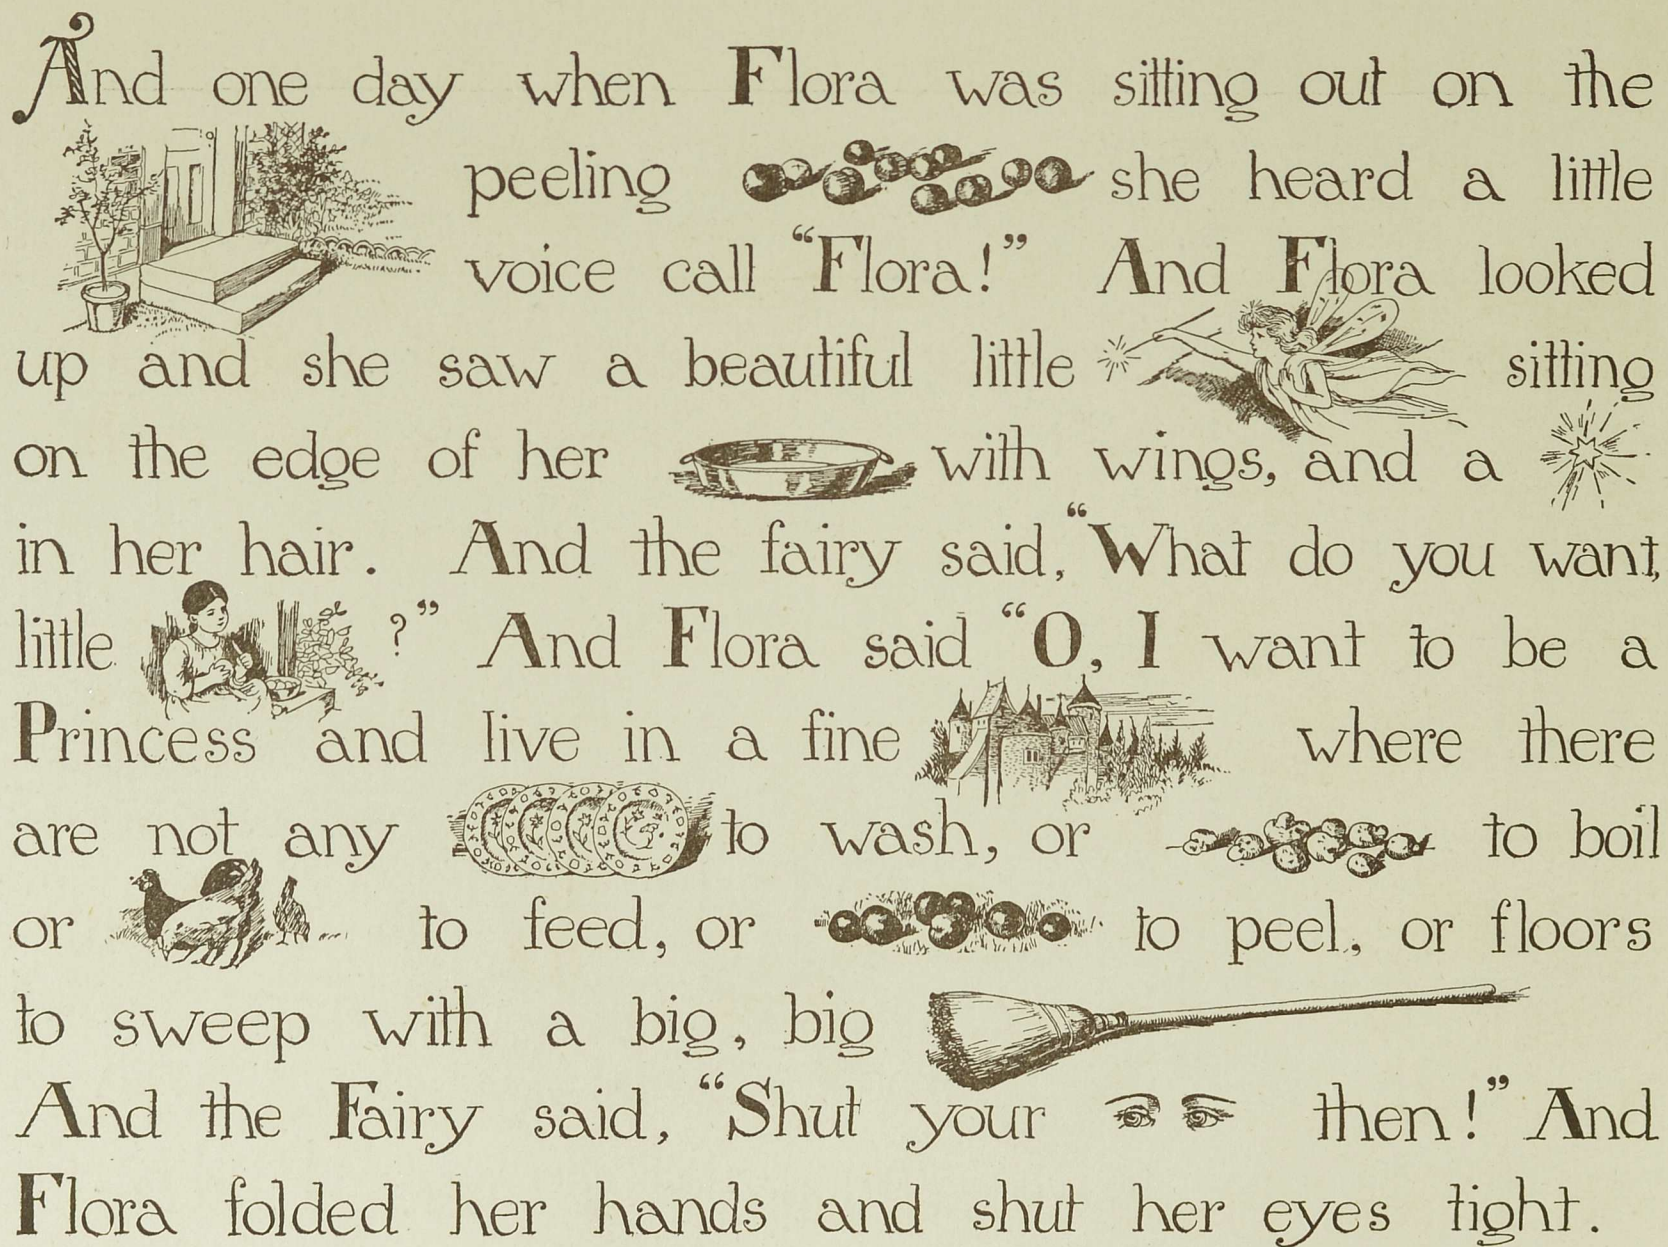 And one day when Flora was sitting out on the
peeling she heard a little
voice call "Flora!" And Flora looked
up and she saw a beautiful little sitting
on the edge of her with wings, and a
in her hair. And the fairy said, "What do you want,
little ?" And Flora said "O, I want to be a
Princess and live in a fine where there
are not any to wash, or to boil
or to feed, or to peel, or floors
to sweep with a big, big
And the Fairy said, "Shut your then!" And
Flora folded her hands and shut her eyes tight.